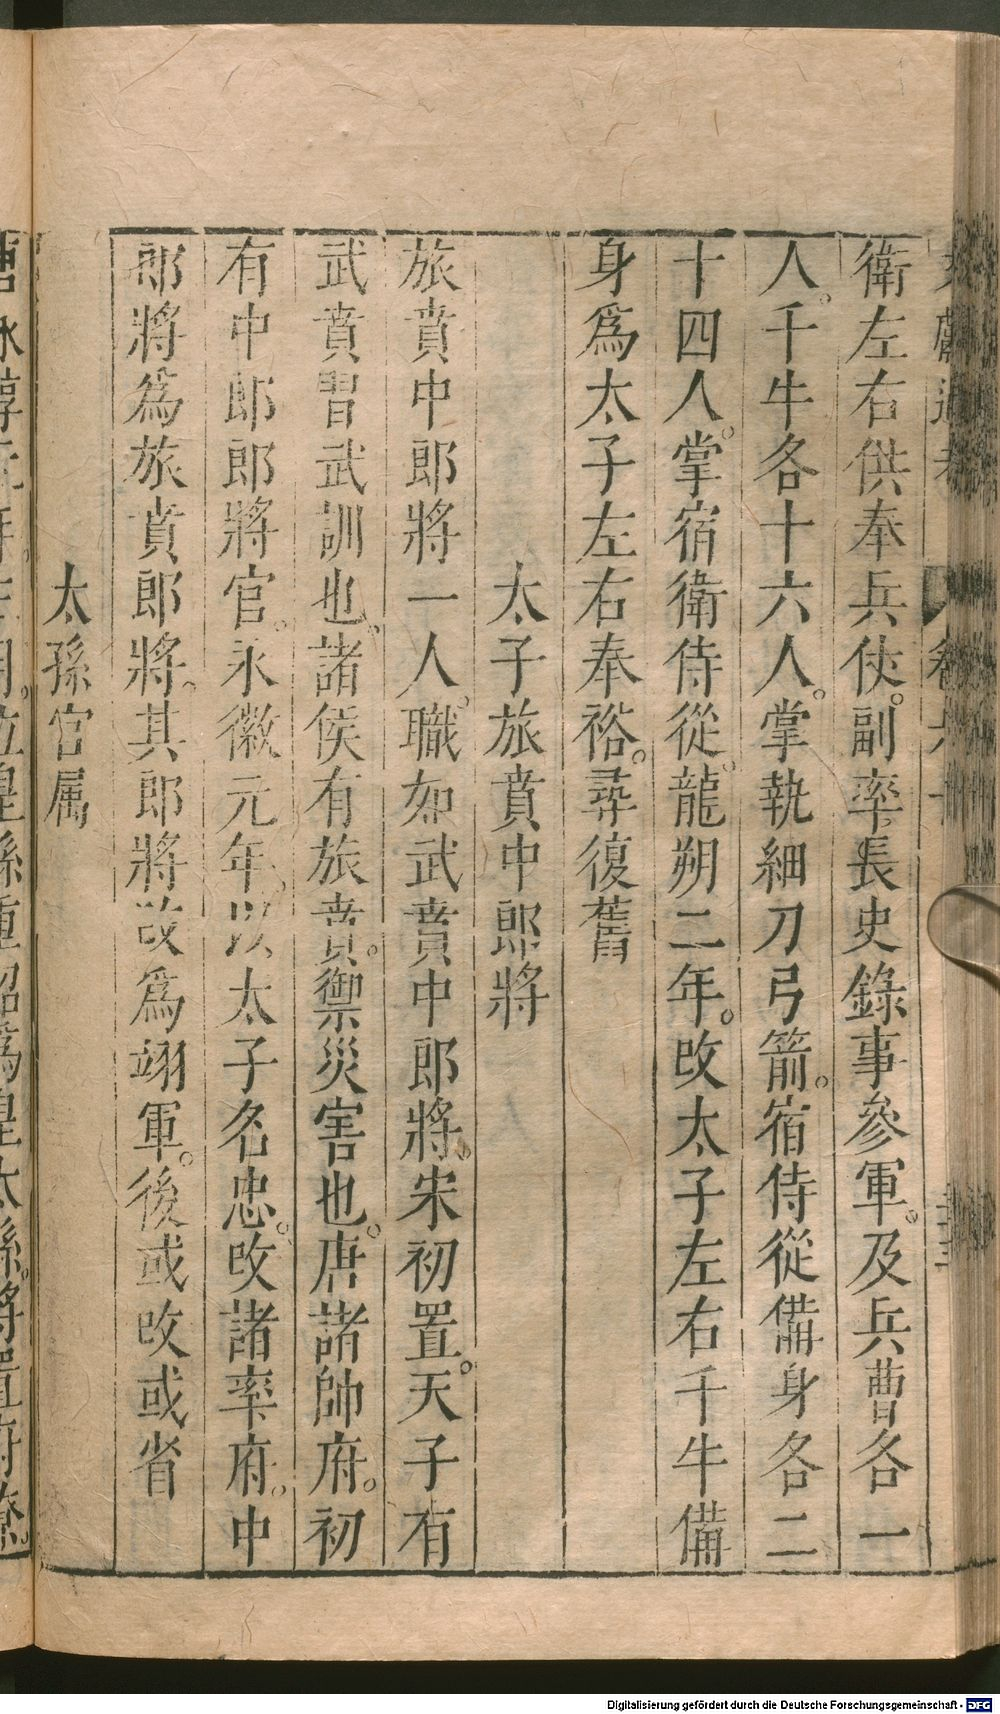 衛左右供奉兵仗。副率長史錄事參軍。及兵曹各一
人。千牛各十六人。掌執細刀弓箭。宿侍從備身各二
十四人。掌宿衛侍從。龍朔二年。改太子左右千牛備
身爲太子左右奉裕。尋復舊
太子旅賁中郎將
旅賁中郎將一人。職如武賁中郎將。宋初置。天子有
武賁習武訓也。諸侯有旅賁。禦災害也。唐諸帥府。初
有中郎郎將官。永徽元年。以太子名忠。改諸率府。中
郎將爲旅賁郎將。其郎將改爲翊軍。後或改或省
太孫官属
Digitalisierung gefördert durch die Deutsche Forschungsgemeinschaft - DFG